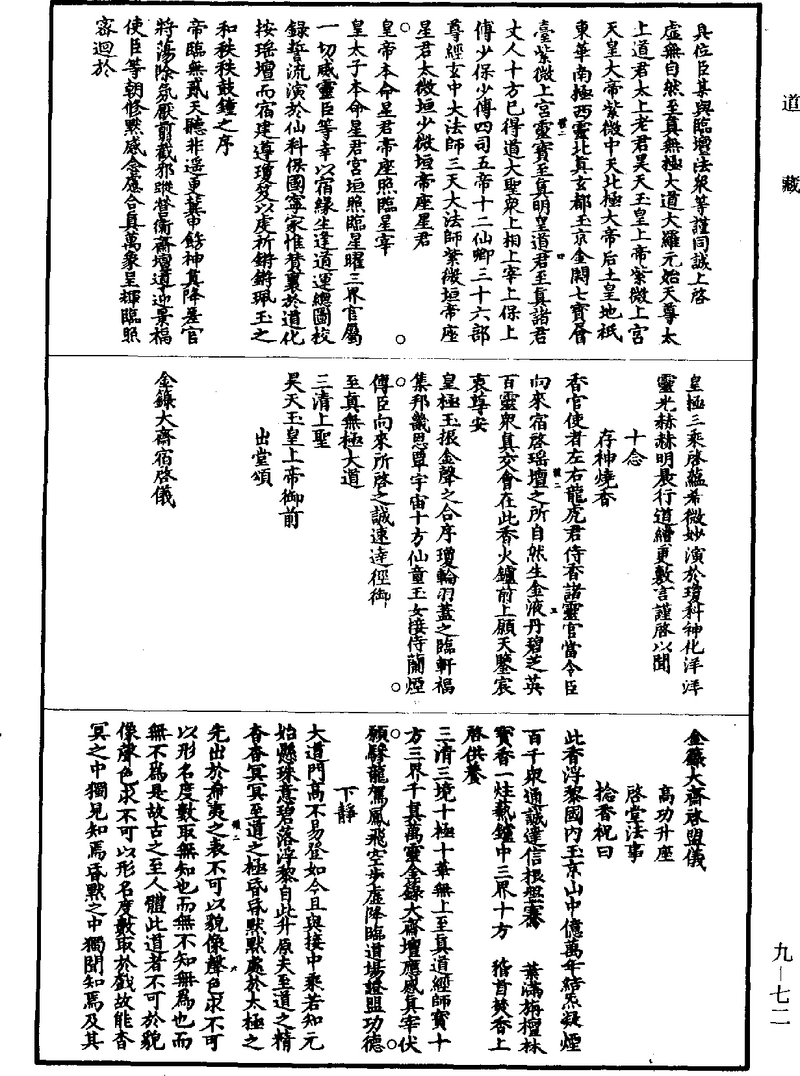 道藏
具位臣某與臨壇法衆等謹同誠上啓
虛無自然至真無極大道大羅元始天尊太
上道君太上老君昊天玉皇上帝紫微上宮
天皇大帝紫微中天北極大帝后土皇地祇
東華南極西靈北真玄都玉京金闕七寶層
臺紫微上宮靈寶至真明皇道君至真諸君
丈人十方已得道大聖衆上相上宰上保上
傅少保少傅四司五帝十二仙卿三十六部
尊經玄中大法師三天大法師紫微垣帝座
星君太微垣少微垣帝座星君
皇帝本命星君帝座照臨星宰
皇太子本命星君宮垣照臨星曜三界官屬
一切威靈臣等幸以宿緣生逢道運總圖校
録誓流演於仙科保國寧家惟贊襄於道化
按瑤壇而宿建遵瓊笈以虔祈鏘鏘珮玉之
和秩秩鼓鐘之序
帝臨無貳天聽非遥更冀申餝神真降墨官
將蕩除氛厭前截邪蹤督衛齋壇導迎景福
使臣等朝修默感念應合真萬象呈輝臨照
寀迴於
皇極三乘啓蘊希微妙演於瓊科神化洋洋
靈光赫赫明晨行道續更敷言謹啓以聞
十念
存神燒香
香官使者左右龍虎君侍香諸靈官當令臣
向來宿啓瑤壇之所自然生金液丹碧芝英
百靈衆真交會在此香火鑪前上願天鑒宸
衷尊安
皇極玉振金聲之合序瓊輪羽蓋之臨軒福
集邦畿恩覃宇宙十方仙童玉女接侍蘭煙
傳臣向來所啓之誠速達徑御
至真無極大道
三清上聖
昊天玉皇上帝御前
出堂頌
金籙大齋宿啓儀
金籙大齋啓盟儀
高功升座
啓堂法事
捻香祝曰
此香浮黎國內玉京山中億萬年結炁凝煙
百千衆通誠達信根盤 葉滿旃檀林
寶香一炷爇鑪中三界十方 稽首焚香上
啓供養
三清三境十極十華無上至真道經師寶十
方三界千真萬靈金籙大齋壇應感真宰伏
願驂龍駕鳳飛空步虛降臨道場證盟功德
下靜
大道門高不易登如今且與接中乘若知元
始懸珠意碧落浮黎自此升原夫至道之精
杳杳冥冥至道之極昏昏默默處於太極之
先出於希夷之表不可以貌像聲色求不可
以形名度數取無知也而無不知無爲也而
無不爲是故古之至人體此道者不可於貌
像聲色求不可以形名度數取於戲故能杳
冥之中獨見知焉昏默之中獨聞知焉及其
九—七二